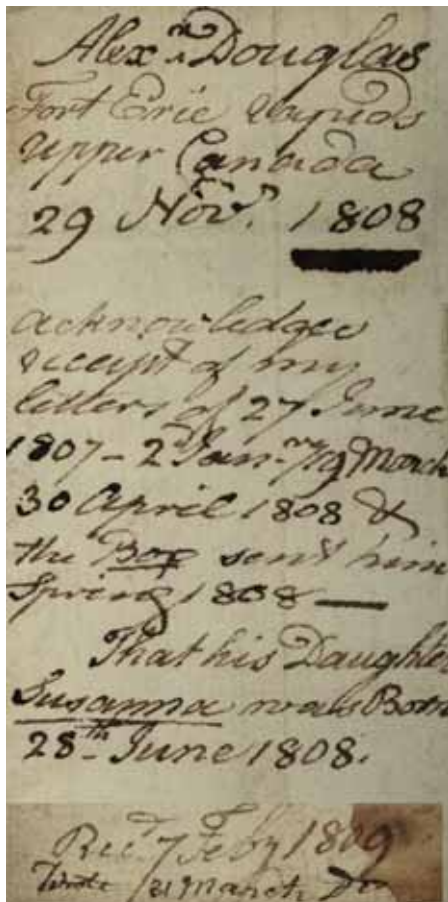 Alexr. Douglas
Fort Erie Rapids
Upper Canada
29 Novr. 1808
acknowledges
receipt of my
letters of 27 June
1807 - 2d Janry 19 March
30 April 1808 &
the Box sent him
Spring 1808 —
That his Daughte
Susanna was Born
28th June 1808.
Recd. 7 Feby 1809
Wrote 21 March Do